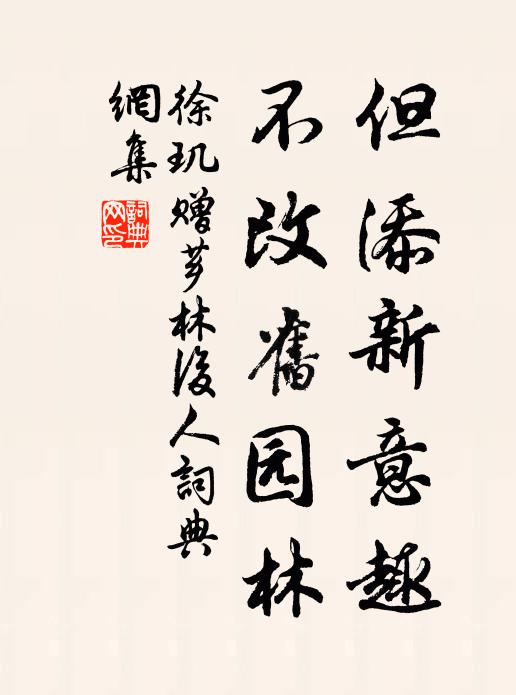 但添新意趣
不改舊园林
徐玑赠芗林後人詞典
網集
詞典网印